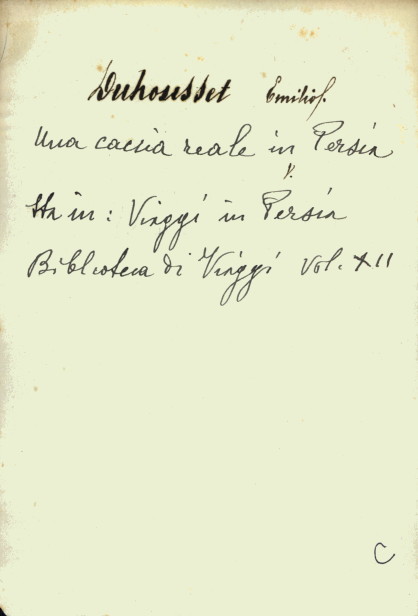 Duhousset Emilio.
Una caccia reale in Persia
v.
Sta in: Viaggi in Persia
Biblioteca di Viaggi vol. XII
C